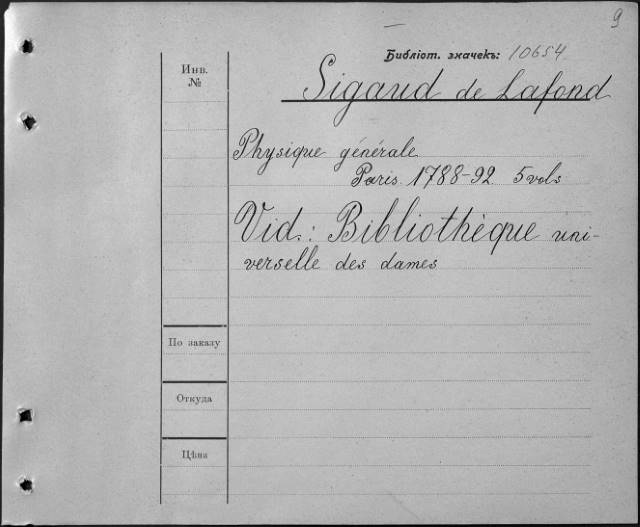 9
Библіот. значекъ: 10654
Инв.
№
Sigaud de Lafond
Physique générale
Paris. 1788-92. 5 vols
Vid.: Bibliothèque uni-
verselle des dames
По заказу
Откуда
Цѣна